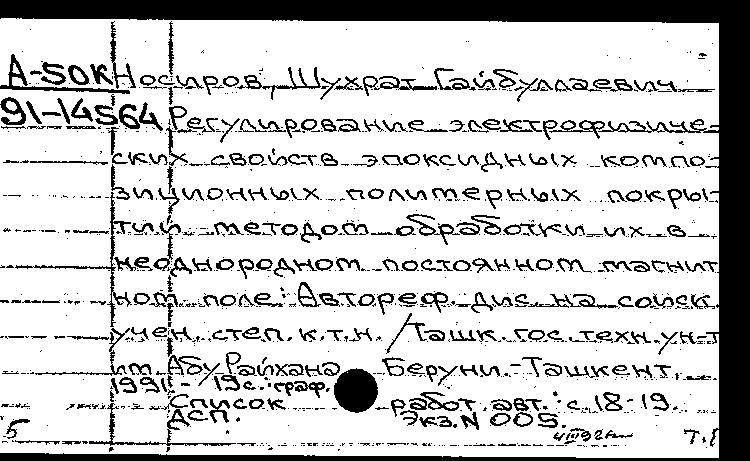 А-50К Носиров, Шухрат Гайбуллаевич
91-14564 Регулирование электрофизиче-
ских свойств эпоксидных компо-
зиционных полимерных покры-
тий методом обработки их в
неоднородном постоянном магнит
ном поле: Автореф. дис. на соиск.
учен. степ. к.т.н. / Ташк. гос. техн. ун-т
им. Абу Райхана Беруни.-Ташкент,
1991.- 19 с.: граф.
Список работ авт.: с. 18-19.
ДСП. Экз. N 005.
5